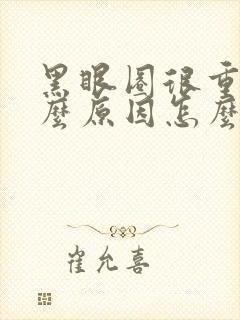 黑眼圈很重
麼原因怎麼
崔允喜